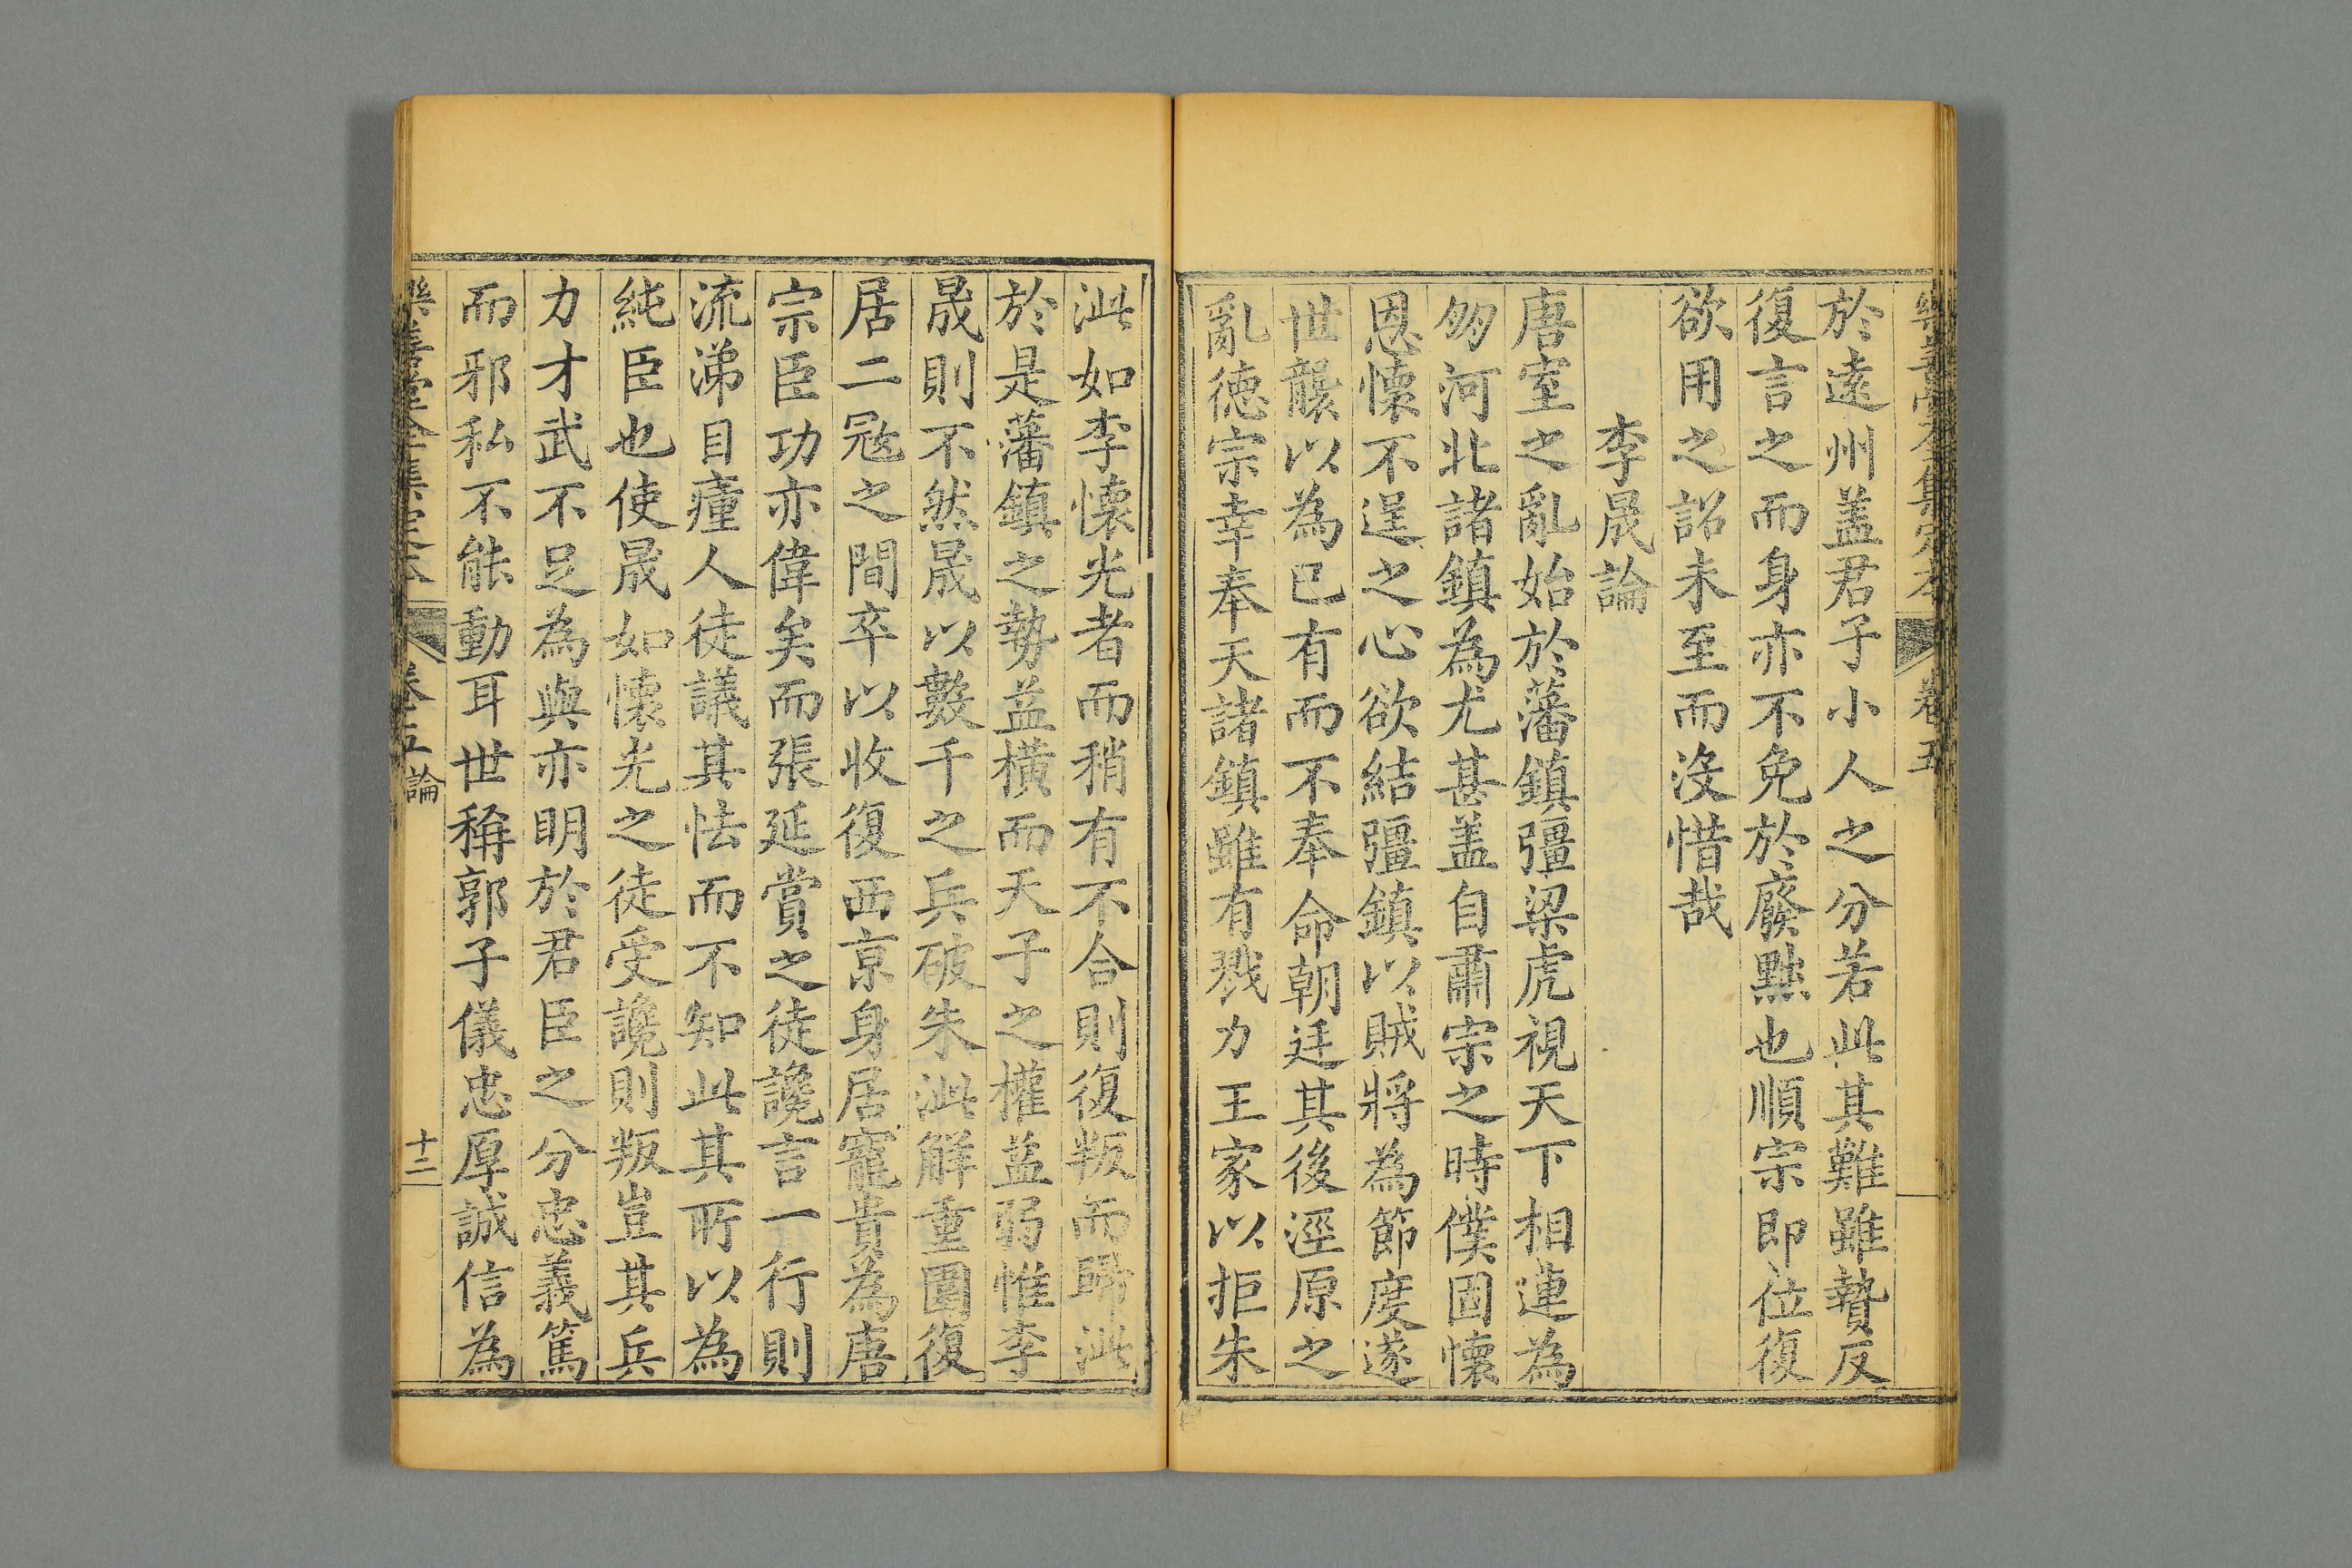 樂善堂全集定本 卷五
於遠州盖君子小人之分若此其難雖贄反
復言之而身亦不免於廢黜也順宗即位復
欲用之詔未至而沒惜哉
李晟論
唐室之亂始於藩鎮彊梁虎視天下相連為
勿河北諸鎮為尤甚盖自肅宗之時僕固懷
恩懷不逞之心欲結彊鎮以賊將為節度遂
世襲以為已有而不奉命朝廷其後涇原之
亂德宗幸奉天諸鎮雖有戮力王家以拒朱
泚如李懷光者而稍有不合則復叛而歸泚
於是藩鎮之勢益橫而天子之權益弱惟李
晟則不然晟以數千之兵破朱泚解重圍復
居二冦之間卒以收復西京身居寵貴為唐
宗臣功亦偉矣而張延賞之徒讒言一行則
流涕目瘇人徒議其怯而不知此其所以為
純臣也使晟如懷光之徒受讒則叛豈其兵
力才武不足為與亦明於君臣之分忠義篤
而邪私不能動耳世稱郭子儀忠厚誠信為
樂善堂全集定本 卷五 論 十二